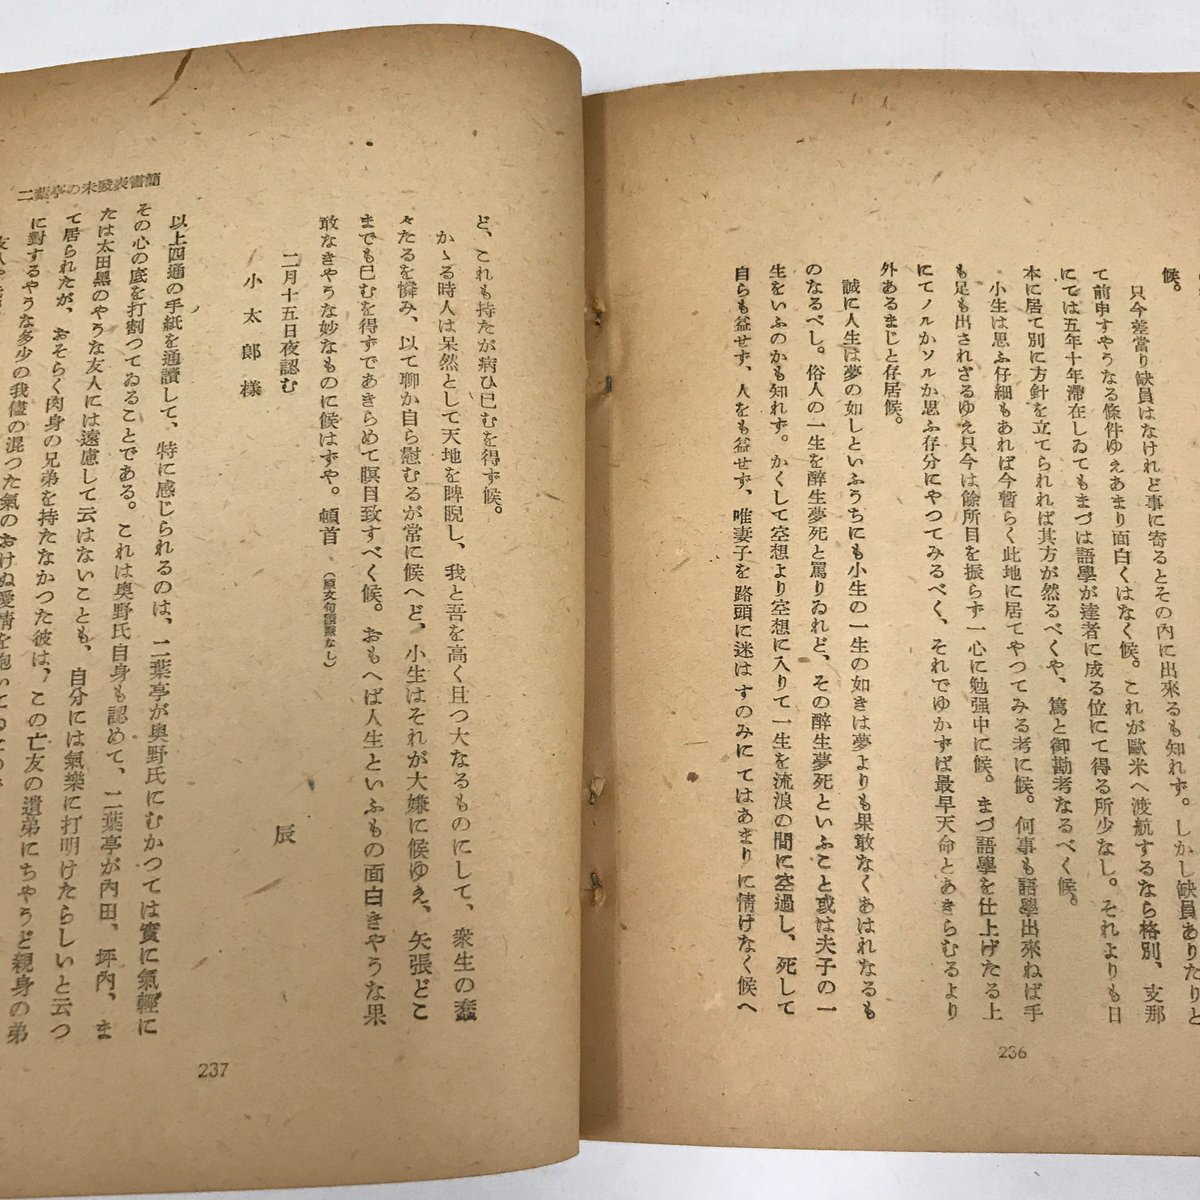 候。
只今差當り缺員はなけれど事に寄るとその內に出來るも知れず。しかし缺員ありたりと
て前申すやうなる條件ゆえあまり面白くはなく候。これが歐米へ渡航するなら格別、支那
にては五年十年滯在しゐてもまづは語學が達者に成る位にて得る所少なし。それよりも日
本に居て別に方針を立てられれば其方が然るべくや、篤と御勘考なるべく候。
小生は思ふ仔細もあれば今暫らく此地に居てやつてみる考に候。何事も語學出來ねば手
も足も出されざるゆえ只今は餘所目を振らず一心に勉强中に候。まづ語學を仕上げたる上
にてノルかソルか思ふ存分にやつてみるべく、それでゆかずば最早天命とあきらむるより
外あるまじと存居候。
誠に人生は夢の如しといふうちにも小生の一生の如きは夢よりも果敢なくあはれなるも
のなるべし。俗人の一生を醉生夢死と罵りゐれど、その醉生夢死といふこと或は夫子の一
生をいふのかも知れず。かくして空想より空想に入りて一生を流浪の間に空過し、死して
自らも益せず、人をも益せず、唯妻子を路頭に迷はすのみにてはあまりに情けなく候へ
236
ど、これも持たが病ひ已むを得ず候。
かゝる時人は呆然として天地を睥睨し、我と吾を高く且つ大なるものにして、衆生の蠢
々たるを憐み、以て聊か自ら慰むるが常に候へど、小生はそれが大嫌に候ゆえ、矢張どこ
までも已むを得ずであきらめて瞑目致すべく候。おもへば人生といふもの面白きやうな果
敢なきやうな妙なものに候はずや。頓首（原文句讀點なし）
二月十五日夜認む
辰
小太郞樣
以上四通の手紙を通讀して、特に感じられるのは、二葉亭が奧野氏にむかつては實に氣輕に
その心の底を打割つてゐることである。これは奧野氏自身も認めて、二葉亭が內田、坪內、ま
たは太田黑のやうな友人には遠慮して云はないことも、自分には氣樂に打明けたらしいと云つ
て居られたが、おそらく肉身の兄弟を持たなかつた彼は、この亡友の遺弟にちやうど親身の弟
に對するやうな多少の我儘の混つた氣のおけぬ愛情を抱いてゐたので
二葉亭の未發表書簡
237